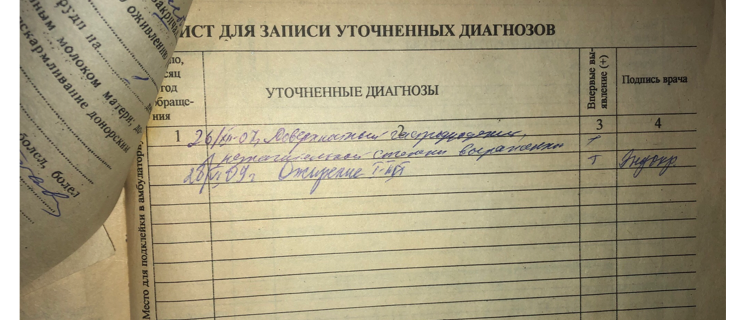 закрича
о оживлению
груди на
ным молоком матери, до
скармливание донорским
болел, болел
ИСТ ДЛЯ ЗАПИСИ УТОЧНЕННЫХ ДИАГНОЗОВ
ло,
сяц
год
обраще-
ния
УТОЧНЕННЫЕ ДИАГНОЗЫ
Впервые вы-
явление (+)
Подпись врача
1 2 3 4
26/ -07, Поверхностный гастродуоденит,
степени
+
26/ 09г Ожирение
Эндокр.
Место для подклейки в амбулаторн